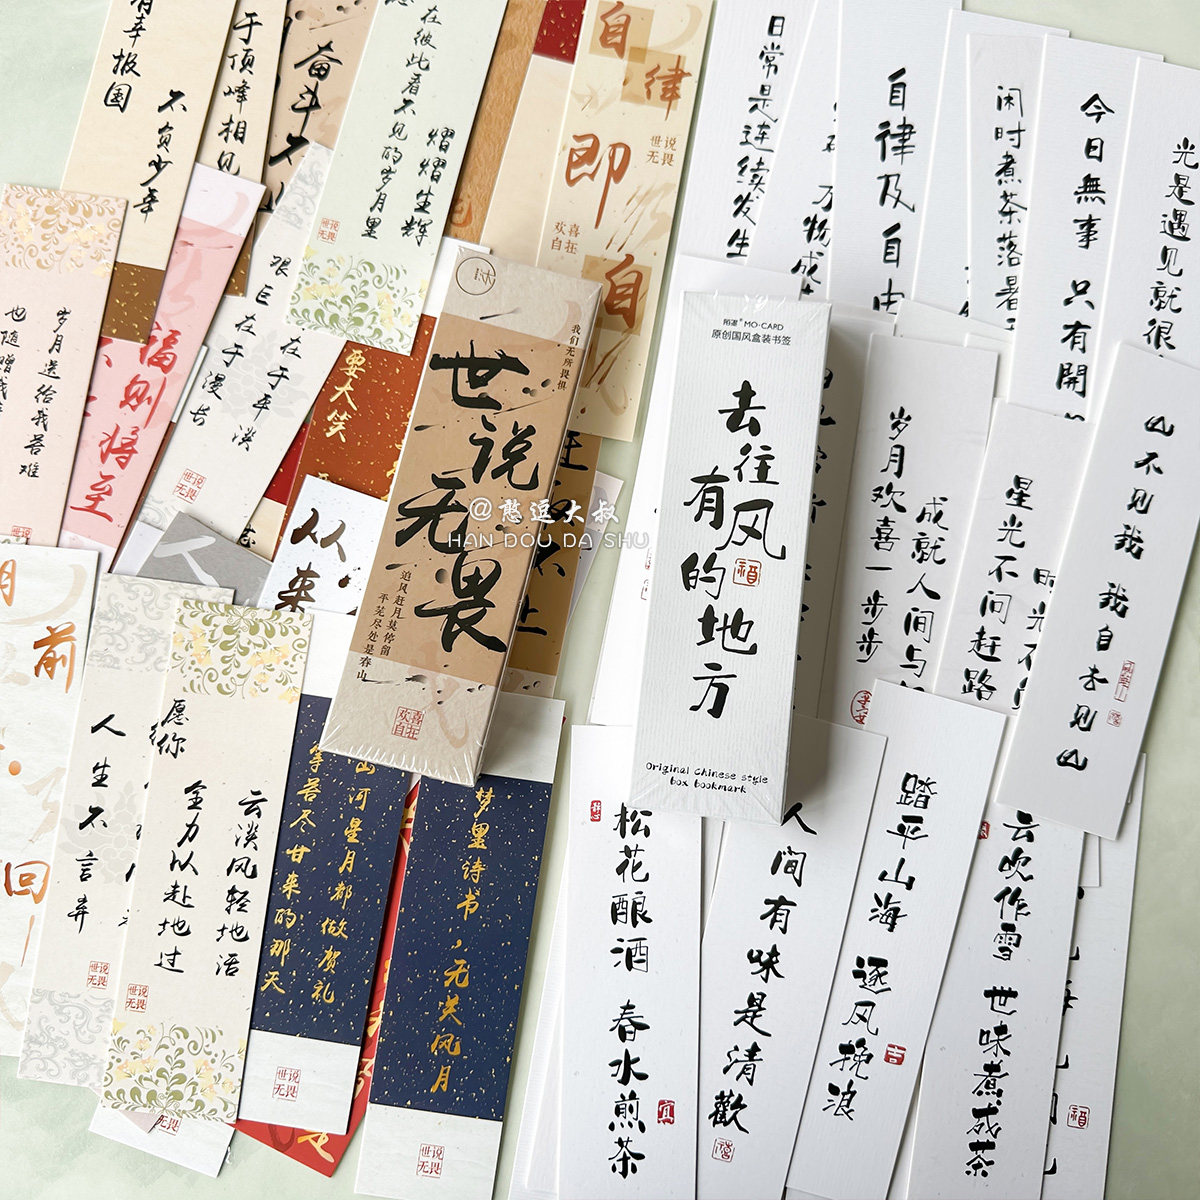 有幸报国
不负少年
于顶峰相见
奋斗不
在彼此看不见的岁月里
熠熠生辉
世说无畏
自律
即
自
世说无畏
欢喜自在
日常是连续发生
万物成
自律及自由
闲时煮茶落暑
今日無事 只有開
光是遇见就很
岁月送给我苦难
也随赠我
世说无畏
福则将至
艰巨在于漫长
在于平淡
世说无畏
要大笑
从
来
我们无所畏惧
世说无畏
追风赶月莫停留
平芜尽处是春山
欢喜自在
@憨逗大叔
HAN DOU DA SHU
陌墨® MO·CARD
原创国风盒装书签
去往有风的地方
Original Chinese style
box bookmark
岁月欢喜一步步
成就人间与
星光不问赶路
时光不
山不见我 我自去见山
前
回
人生不言弃
世说无畏
愿你
全力以赴地过
云淡风轻地活
世说无畏
山河星月都做贺礼
等苦尽甘来的那天
世说无畏
梦里诗书,无关风月
世说无畏
松花酿酒 春水煎茶
人间有味是清歡
踏平山海 逐风挽浪
云吹作雪 世味煮成茶